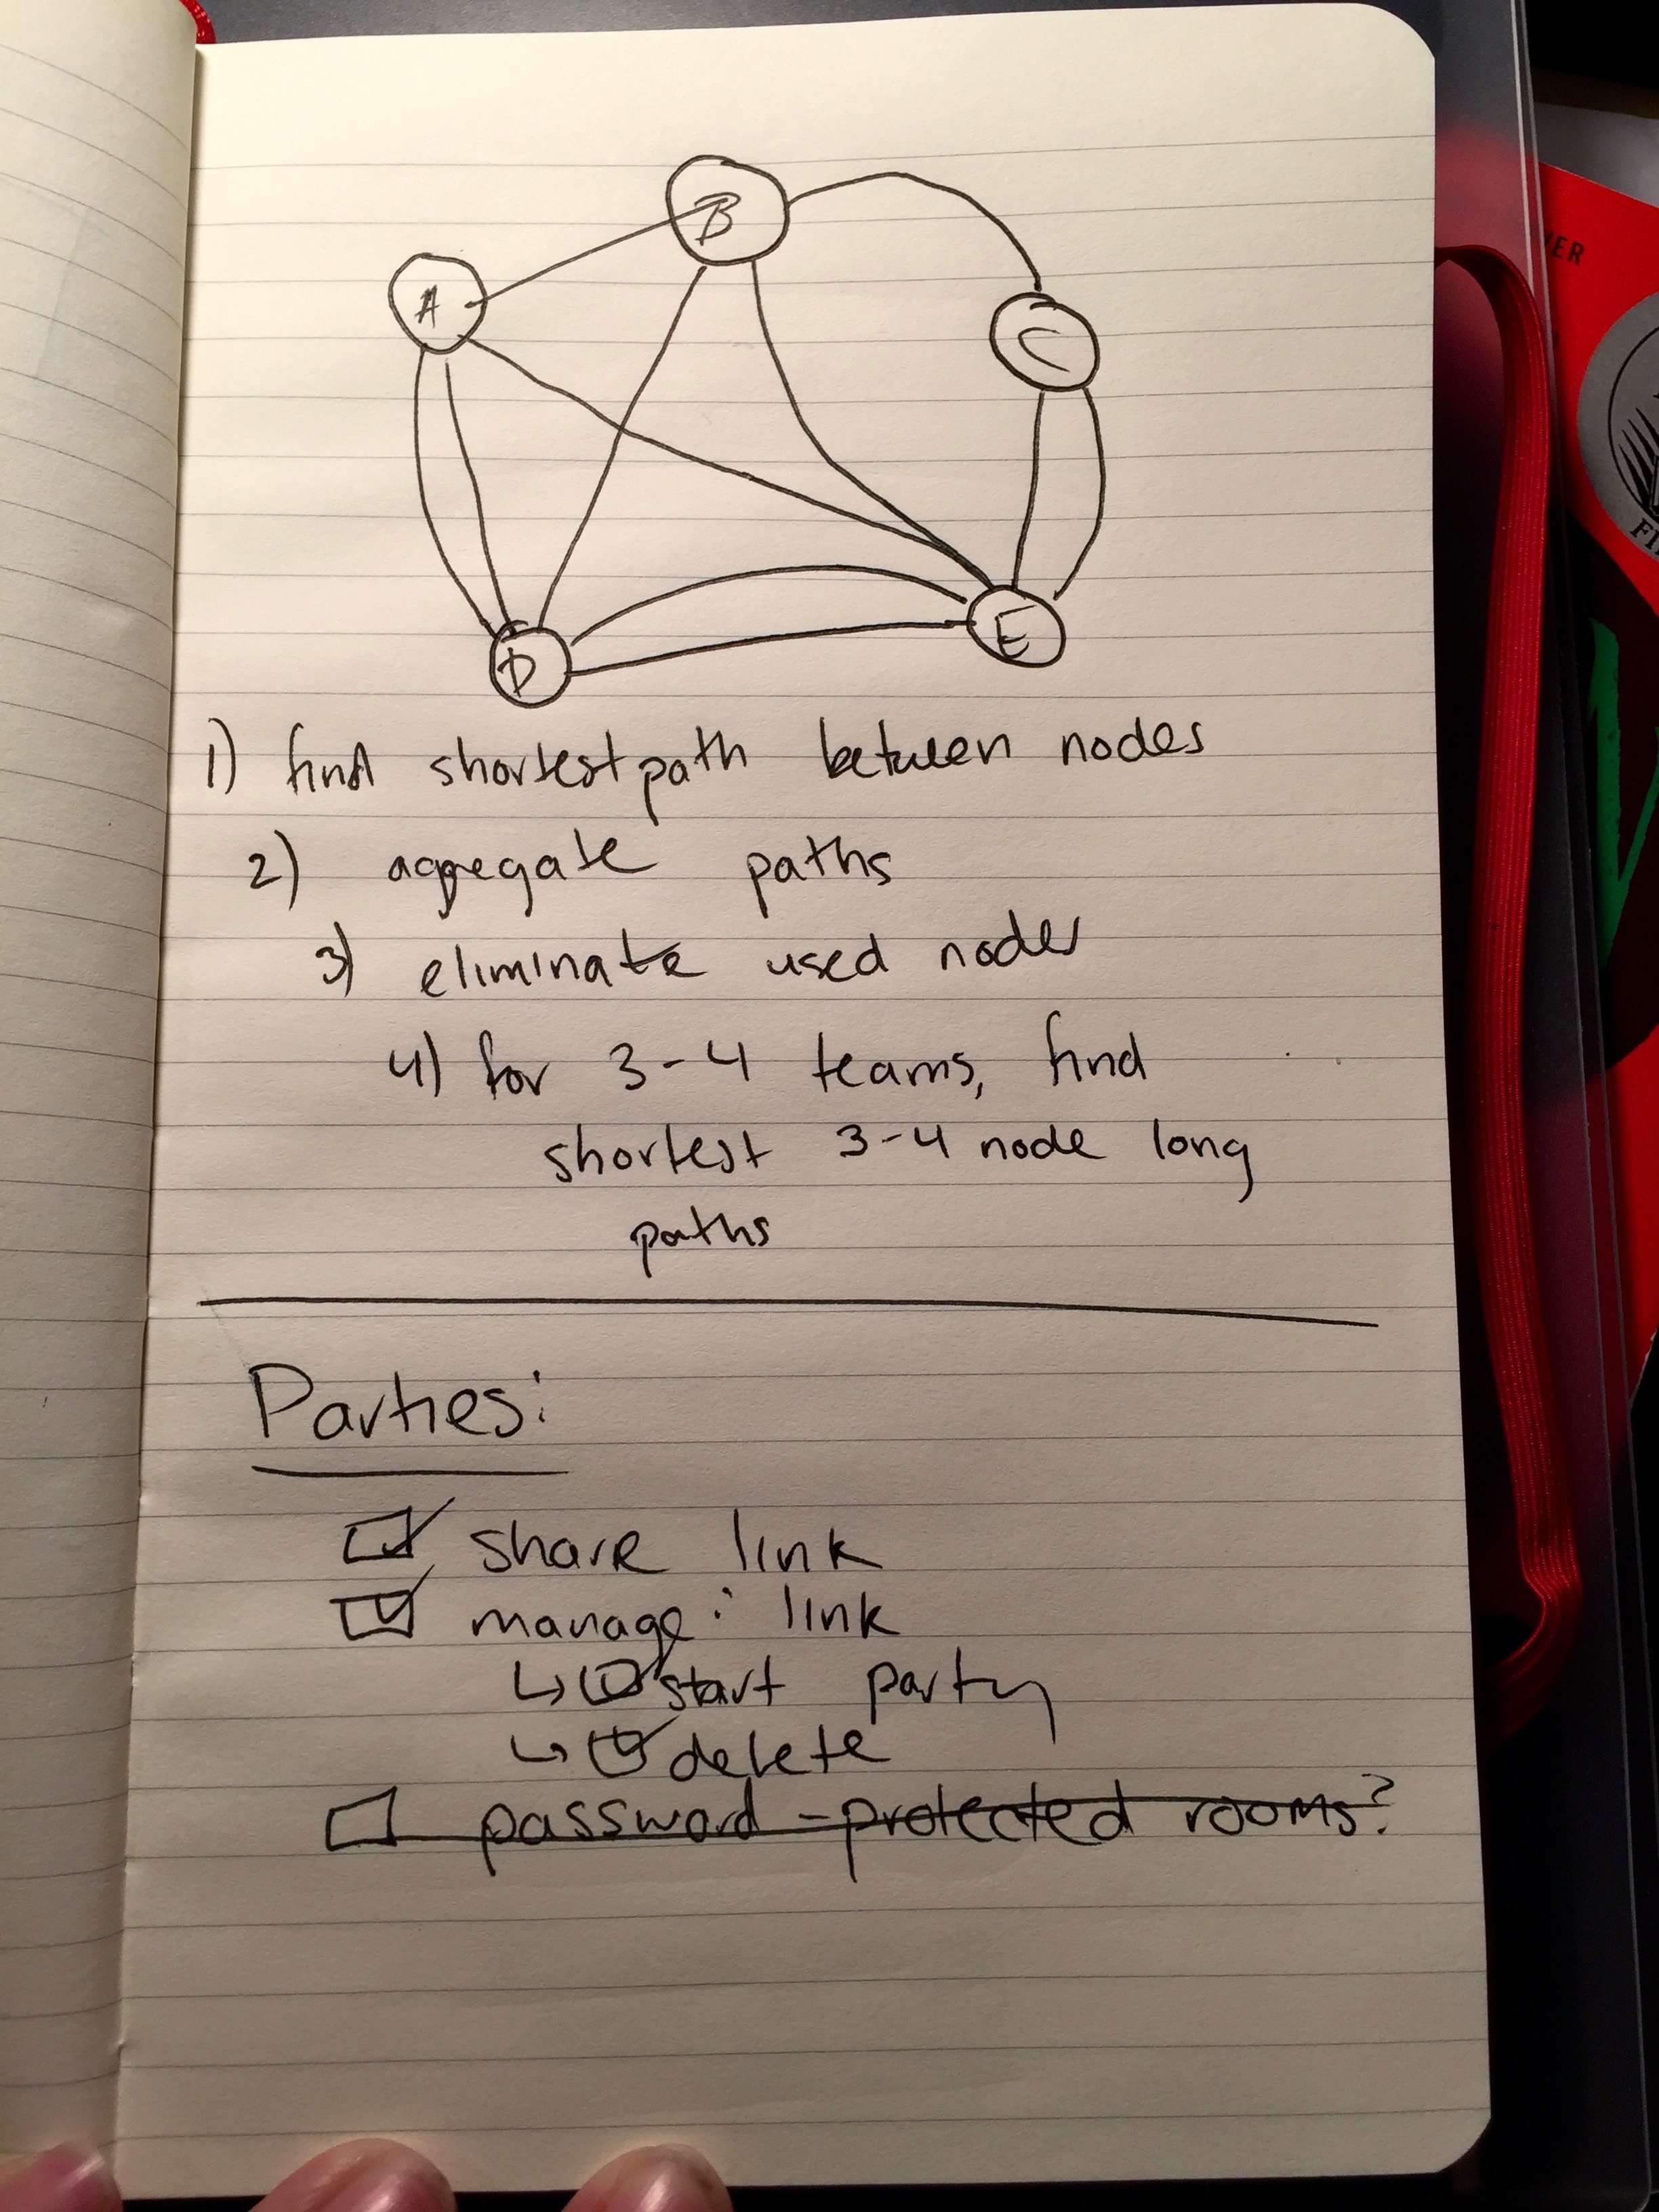 B
A
C
D
E
1) find shortest path between nodes
2) aggregate paths
3) eliminate used nodes
4) for 3-4 teams, find
shortest 3-4 node long
paths
Parties:
share link
manage: link
↳ start party
↳ delete
password-protected rooms?